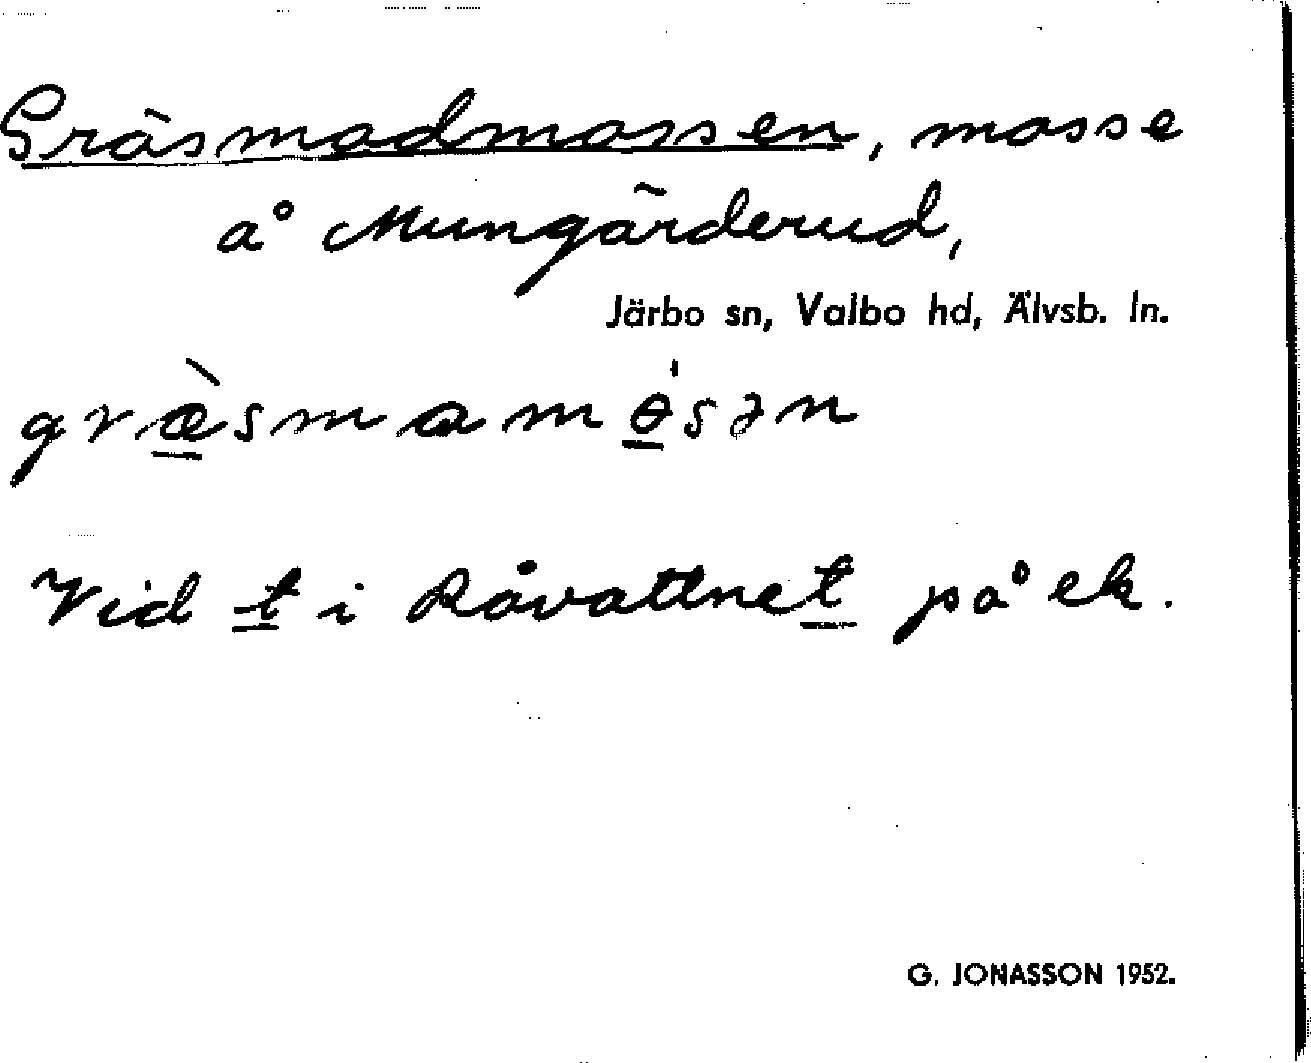 Gräsmadmossen, mosse
å Mungärderud,
Järbo sn, Valbo hd, Älvsb. ln.
græ̀smamɵ́sən
Vid t i Råvattnet på ek.
G. JONASSON 1952.